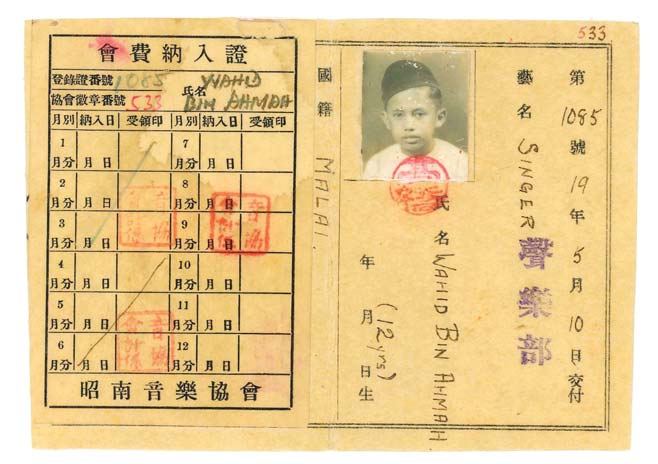 會費納入證
登錄證番號 1085 氏名 WAHID
協會徽章番號 533 BIN AHMAH
月別 納入日 受領印 月別 納入日 受領印
1 月分 月 日 7 月分 月 日
2 月分 月 日 8 月分 月 日
3 月分 月 日 9 月分 月 日
4 月分 月 日 10 月分 月 日
5 月分 月 日 11 月分 月 日
6 月分 月 日 12 月分 月 日
昭南音樂協會
533
第 1085 號 19 年 5 月 10 日交付
藝名 SINGER
聲樂部
氏名 WAHID BIN AHMAH
年 月 日生 (12 yrs)
國籍 MALAI.